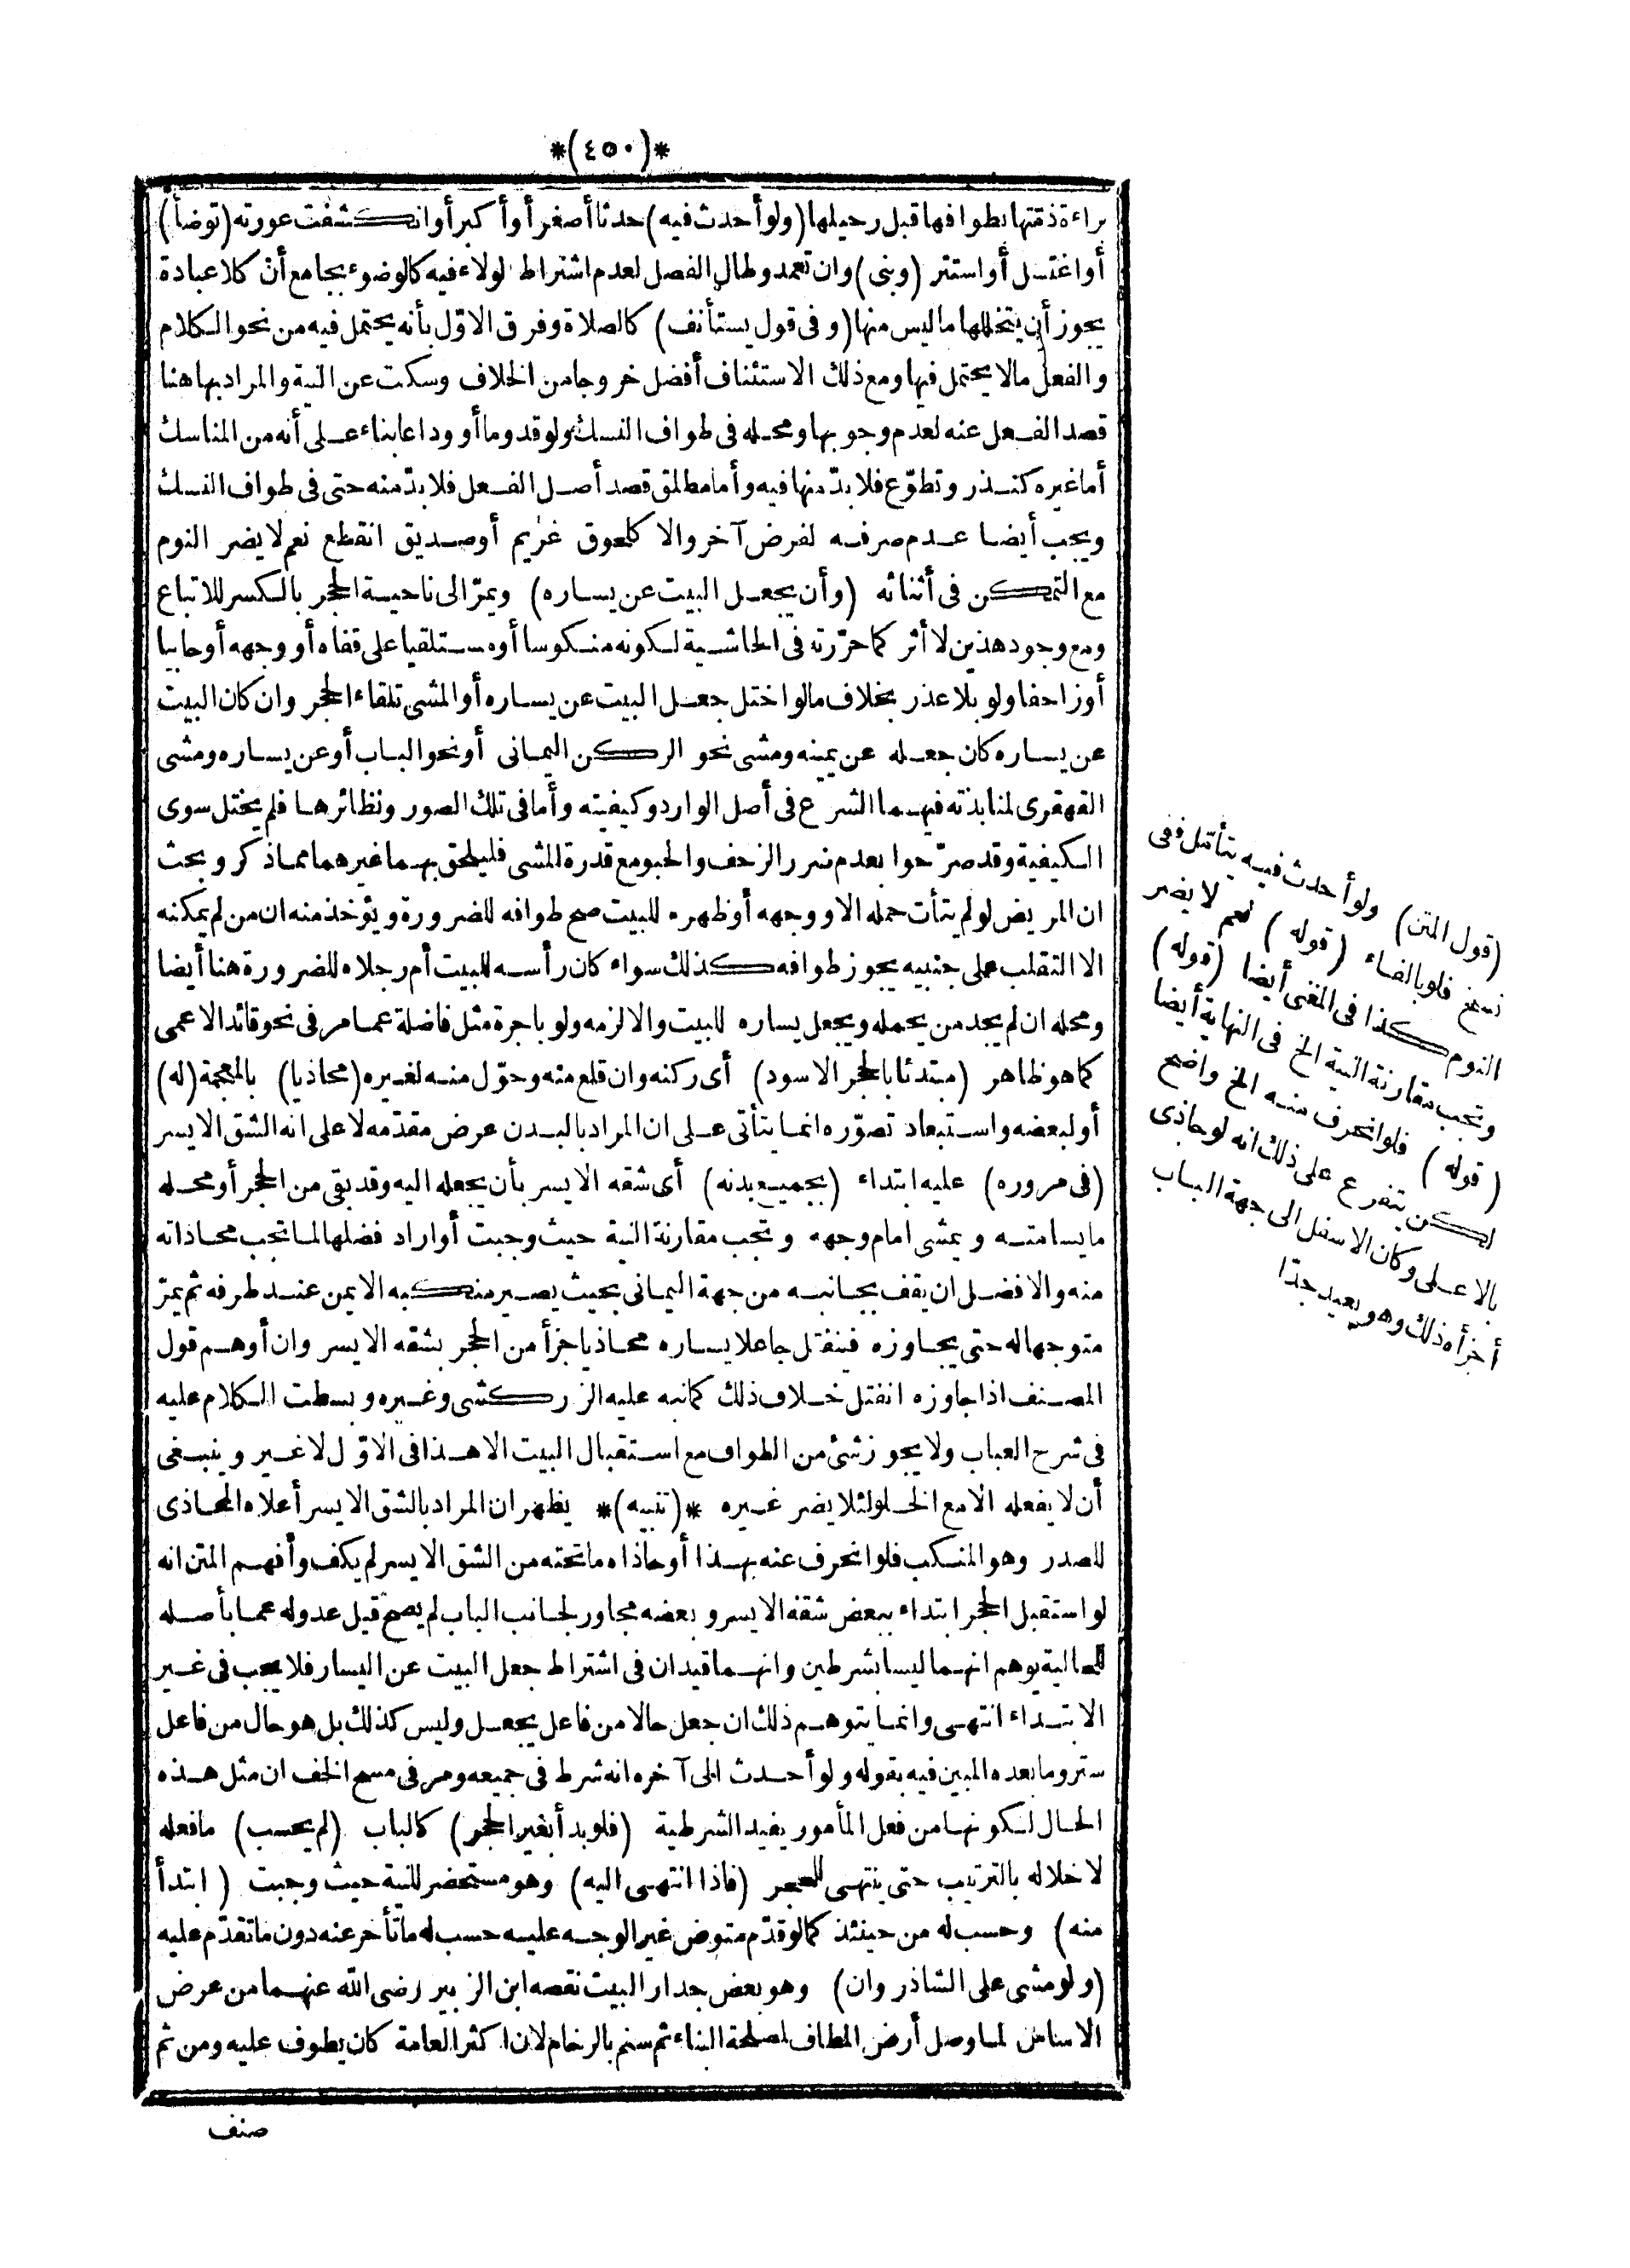 *(٤٥٠)*
براءة ذمّتها بطوافها قبل رحيلها (ولو أحدث فيه) حدثا أصغر أو أكبر أو انكشفت عورته (توضأ)
أو اغتسل أو استتر (وبنى) وان تعمد وطال الفصل لعدم اشتراط لولاء فيه كالوضوء بجامع أن كلا عبادة
يجوز أن يتخللها ما ليس منها (وفى قول يستأنف) كالصلاة وفرق الاوّل بأنه يحتمل فيه من نحو الكلام
والفعل ما لا يحتمل فيها ومع ذلك الاستئناف أفضل خروجا من الخلاف وسكت عن النية والمراد بها هنا
قصد الفعل عنه لعدم وجوبها ومحله فى طواف النسك ولو قدوما أو وداعا بناء على أنه من المناسك
أما غيره كنذر وتطوّع فلا بدّ منها فيه وأما مطلق قصد أصل الفعل فلا بدّ منه حتى فى طواف النسك
ويجب أيضا عدم صرفه لفرض آخر والا كلحوق غريم أو صديق انقطع نعم لا يضر النوم
مع التمكن فى أثنائه (وأن يجعل البيت عن يساره) ويمرّ الى ناحية الحجر بالكسر للاتباع
ومع وجود هذين لا أثر كما حرّرته فى الحاشية لكونه منكوسا أو مستلقيا على قفاه أو وجهه أو حابيا
أو زاحفا ولو بلا عذر بخلاف ما لو اختل جعل البيت عن يساره أو المشى تلقاء الحجر وان كان البيت
عن يساره كان جعله عن يمينه ومشى نحو الركن اليمانى أو نحو الباب أو عن يساره ومشى
القهقرى لمنابذته فيهما الشرع فى أصل الوارد وكيفيته وأما فى تلك الصور ونظائرها فلم يختل سوى
الكيفية وقد صرّحوا بعدم ضرر الزحف والحبو مع قدرة المشى فليلحق بهما غيرهما مما ذكر وبحث
ان المريض لو لم يتأت حمله الا ووجهه أو ظهره للبيت صح طوافه للضرورة ويؤخذ منه ان من لم يمكنه
الا التقلب على جنبيه يجوز طوافه كذلك سواء كان رأسه للبيت أم رجلاه للضرورة هنا أيضا
ومحله ان لم يجد من يحمله ويجعل يساره للبيت والا لزمه ولو باجرة مثل فاضلة عما مر فى نحو قائد الاعمى
كما هو ظاهر (مبتدئا بالحجر الاسود) أى ركنه وان قلع منه وحوّل منه لغيره (محاذيا) بالمعجمة (له)
أو لبعضه واستبعاد تصوّره انما يتأتى على ان المراد بالبدن عرض مقدّمه لا على انه الشق الايسر
(فى مروره) عليه ابتداء (بجميع بدنه) أى شقه الايسر بأن يجعله اليه وقد بقى من الحجر أو محله
ما يسامته ويمشى امام وجهه وتجب مقارنة النية حيث وجبت أو اراد فضلها لما تجب محاذاته
منه والافضل ان يقف بجانبه من جهة اليمانى بحيث يصير منكبه الايمن عند طرفه ثم يمرّ
متوجها له حتى يجاوزه فينفتل جاعلا يساره محاذيا جزأ من الحجر بشقه الايسر وان أوهم قول
المصنف اذا جاوزه انفتل خلاف ذلك كما نبه عليه الزركشى وغيره وبسطت الكلام عليه
فى شرح العباب ولا يجوز شئ من الطواف مع استقبال البيت الا هذا فى الاوّل لا غير وينبغى
أن لا يفعله الا مع الخلو لئلا يضر غيره *(تنبيه)* يظهر ان المراد بالشق الايسر أعلاه المحاذى
للصدر وهو المنكب فلو انحرف عنه بهذا أو حاذاه ما تحته من الشق الايسر لم يكف وأفهم المتن انه
لو استقبل الحجر ابتداء ببعض شقه الايسر وبعضه مجاور لجانب الباب لم يصح قيل عدوله عما بأصله
للحالية يوهم انهما ليسا بشرطين وانهما قيدان فى اشتراط جعل البيت عن اليسار فلا يجب فى غير
الابتداء انتهى وانما يتوهم ذلك ان جعل حالا من فاعل يجعل وليس كذلك بل هو حال من فاعل
ستر وما بعده المبين فيه بقوله ولو أحدث الى آخره انه شرط فى جميعه ومر فى مسح الخف ان مثل هذه
الحال لكونها من فعل المأمور يفيد الشرطية (فلو بدأ بغير الحجر) كالباب (لم يحسب) ما فعله
لاخلاله بالترتيب حتى ينتهى للحجر (فاذا انتهى اليه) وهو مستحضر للنية حيث وجبت (ابتدأ
منه) وحسب له من حينئذ كما لو قدّم متوض غير الوجه عليه حسب له ما تأخر عنه دون ما تقدّم عليه
(ولو مشى على الشاذروان) وهو بعض جدار البيت نقصه ابن الزبير رضى الله عنهما من عرض
الاساس لما وصل أرض المطاف لمصلحة البناء ثم سنم بالرخام لان اكثر العامة كان يطوف عليه ومن ثم
صنف
(قول المتن) ولو أحدث فيه يتأمّل ففى
نسخ فلو بالفاء (قوله) نعم لا يضر
النوم كذا فى المغنى أيضا (قوله)
وتجب مقارنة النية الخ فى النهاية أيضا
(قوله) فلو انحرف منه الخ واضح
لكن يتفرع على ذلك انه لو حاذى
بالاعلى وكان الاسفل الى جهة الباب
أجزأه ذلك وهو بعيد جدّا